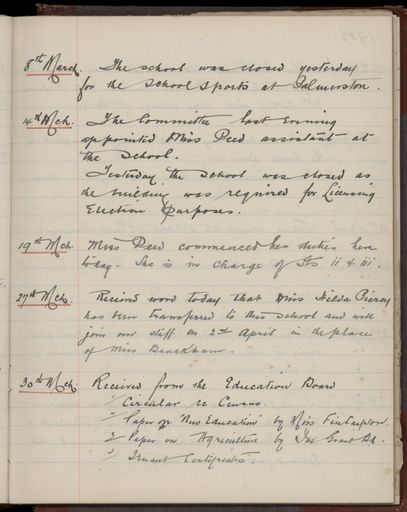 8th March. The school was closed yesterday
for the School Sports at Palmerston.
14th Mch. The Committee last evening
appointed Miss Peed assistant at
the School.
Yesterday the School was closed as
the building was required for Licensing
Election purposes.
19th Mch Miss Peed commenced her duties here
today. She is in charge of Sts ii & iii.
27th Mch. Received word today that Miss Hilda
has been transferred to this School and will
join our staff on 2nd April in the place
of Miss
30th Mch. Received from the Education Board
Circular re Census
Paper on "New Education" by Miss
2 Paper on Agriculture by Grant
Truant Certificates.